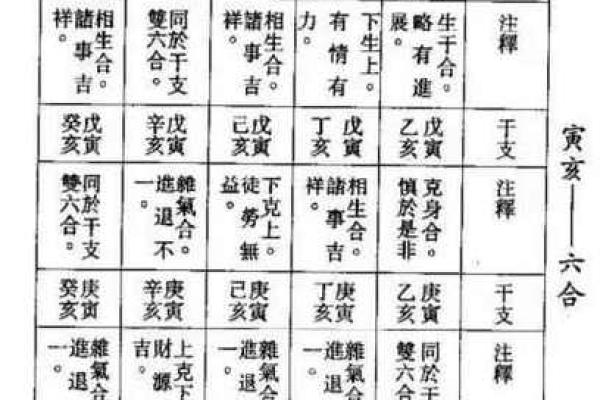 寅亥——六合
注釋
生干合。
略有進
展。
下生上。
有情有
力。
相生合。
諸事吉
祥。
同於干支
雙六合。
相生合。
諸事吉
祥。
干支
戊寅
乙亥
戊寅
丁亥
戊寅
己亥
戊寅
辛亥
戊寅
癸亥
注釋
克身合。
慎於是非
相生合。
諸事吉
祥。
下克上。
徒勞無
益。
雜氣合。
進退不
一。
同於干支
雙六合。
干支
庚寅
乙亥
庚寅
丁亥
庚寅
己亥
庚寅
辛亥
庚寅
癸亥
注釋
同於干支
雙六合
雜氣合
進退
一。
雜氣合
進退
一。
上克下
財源
吉。
雜氣合
進退
一。